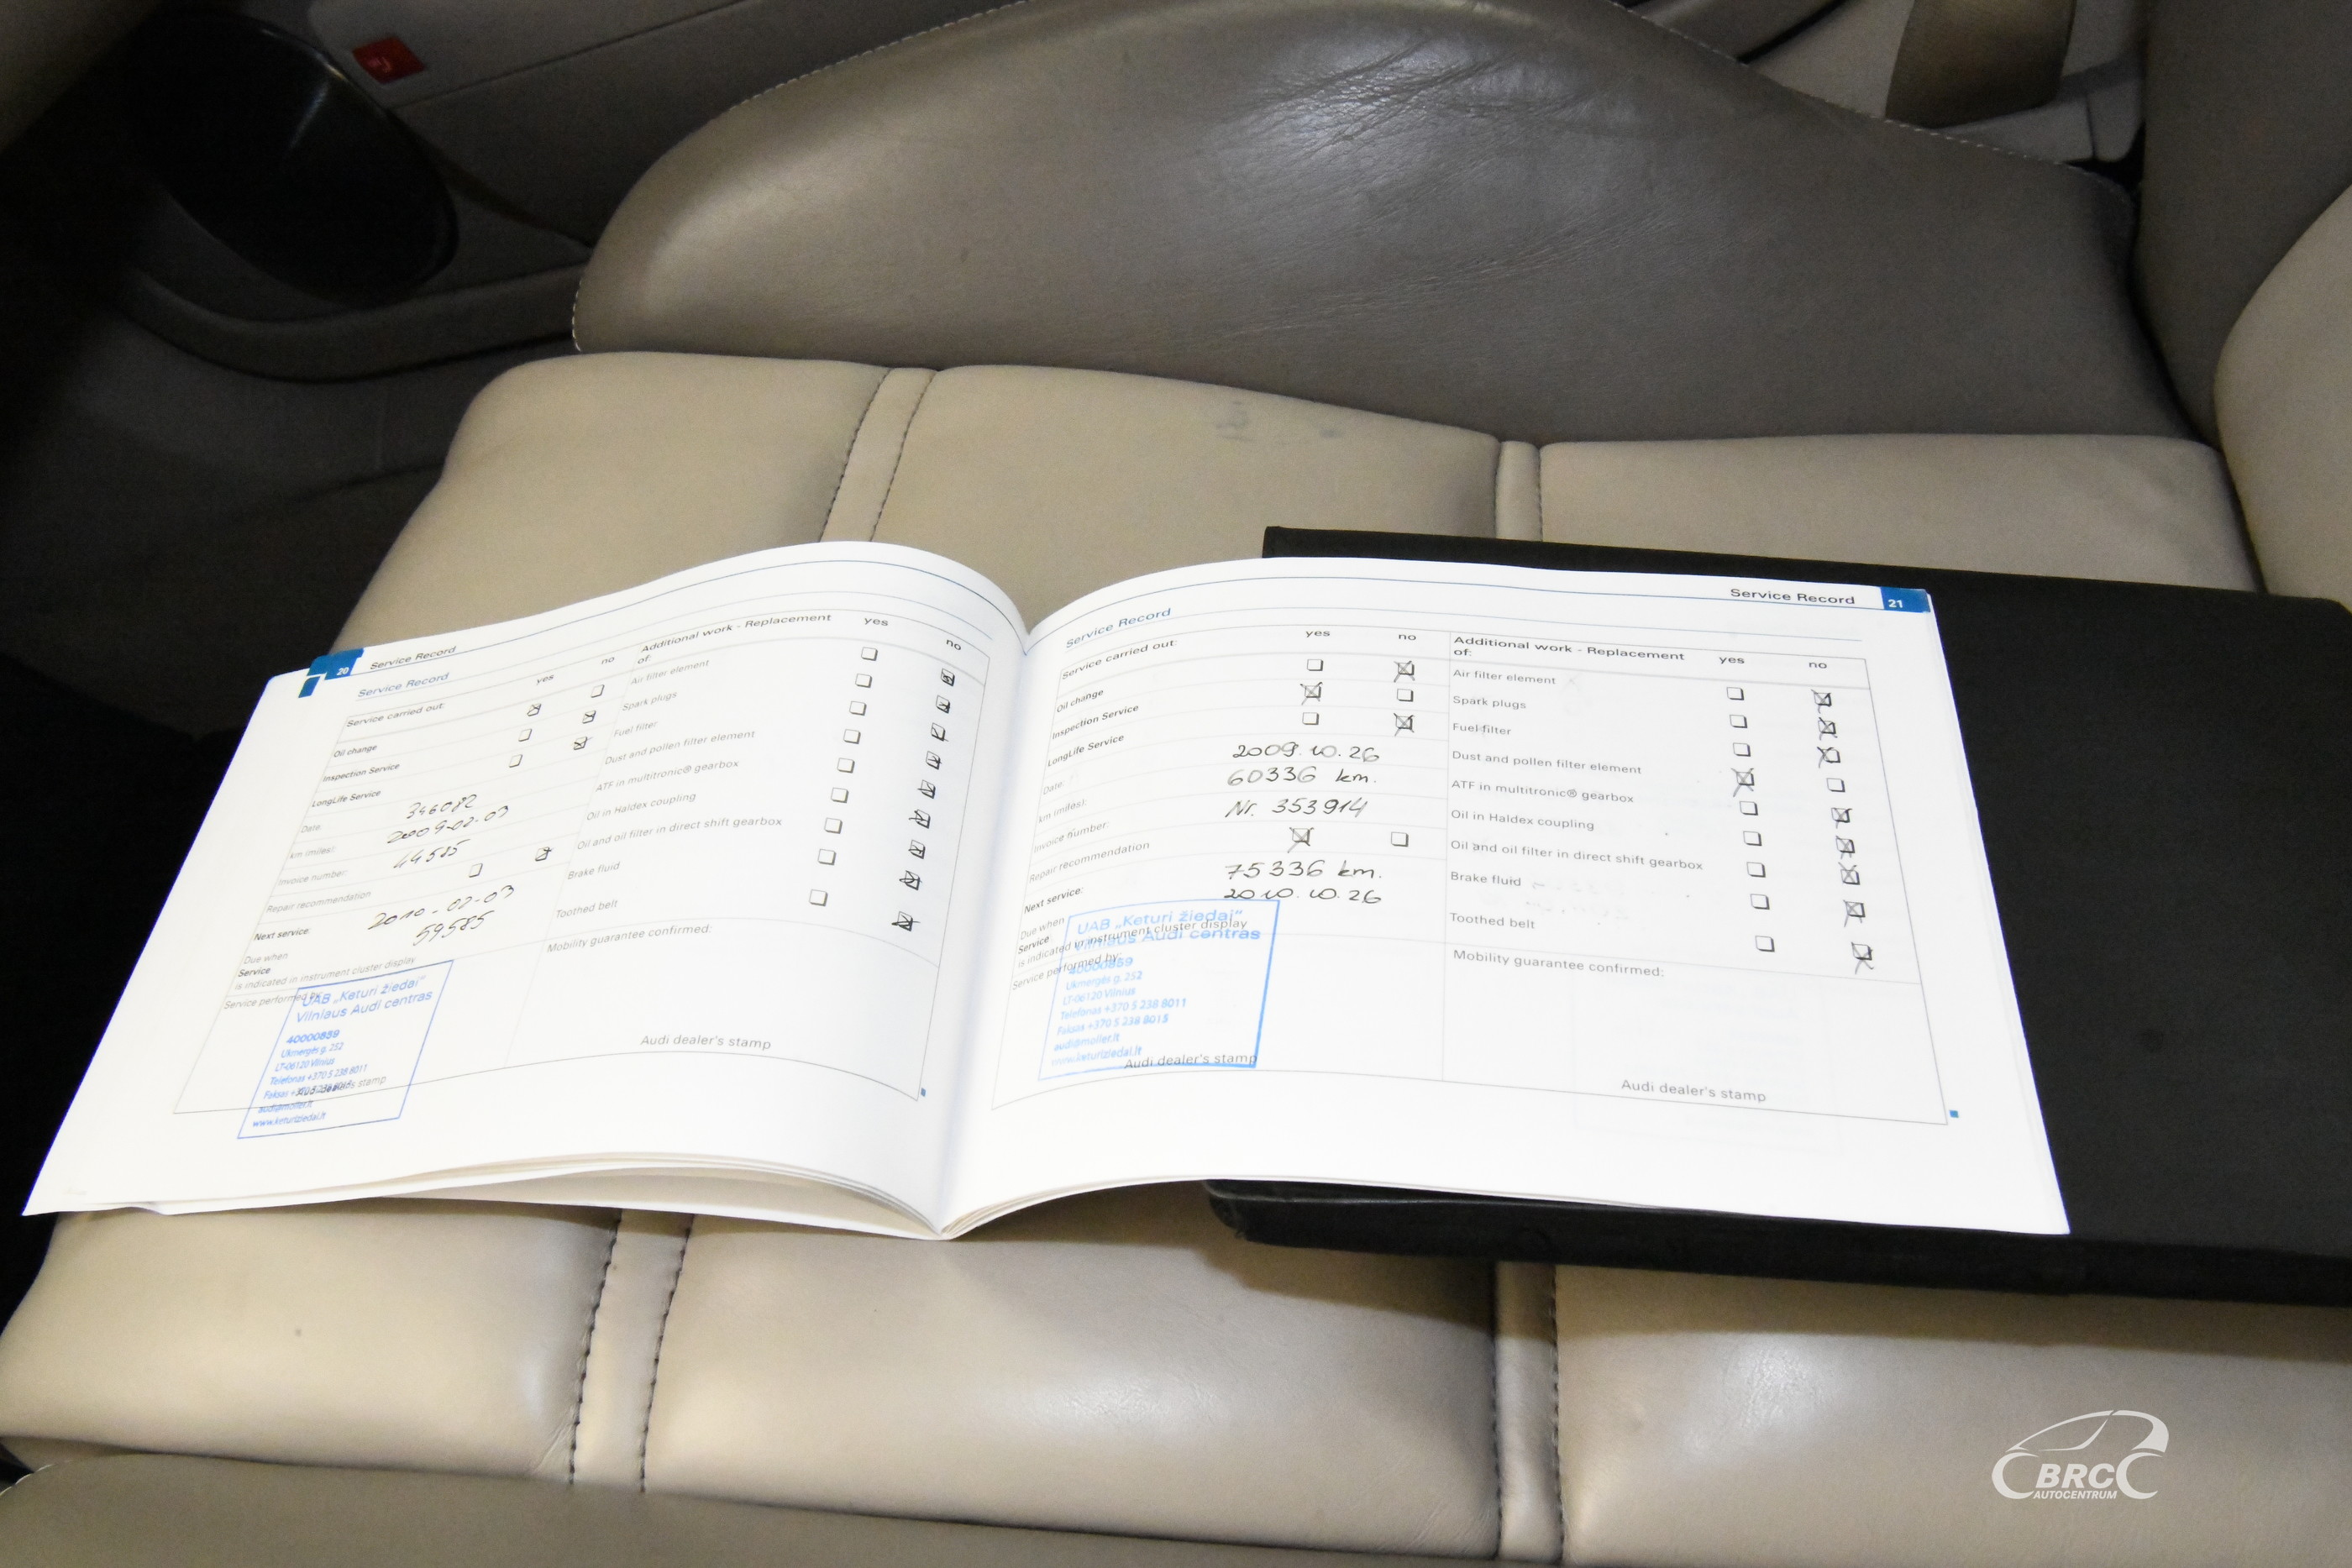 20 Service Record
Service Record
Service carried out: yes no
Oil change
Inspection Service
LongLife Service
346082
Date: 2009-02-03
km (miles): 44585
Invoice number:
Repair recommendation
Next service: 2010-02-03
59585
Due when
Service
is indicated in instrument cluster display
Service performed by:
UAB „Keturi žiedai“
Vilniaus Audi centras
40000859
Ukmergės g. 252
LT-06120 Vilnius
Telefonas +370 5 238 8011
Faksas +370 5 238 8015
audi@moller.lt
www.keturiziedai.lt
Audi dealer's stamp
Additional work - Replacement of: yes no
Air filter element
Spark plugs
Fuel filter
Dust and pollen filter element
ATF in multitronic® gearbox
Oil in Haldex coupling
Oil and oil filter in direct shift gearbox
Brake fluid
Toothed belt
Mobility guarantee confirmed:
Audi dealer's stamp
Service Record 21
Service Record
Service carried out: yes no
Oil change
Inspection Service
LongLife Service
Date: 2009.10.26
km (miles): 60336 km.
Invoice number: Nr. 353914
Repair recommendation
Next service: 75336 km.
2010.10.26
Due when
Service
is indicated in instrument cluster display
Service performed by:
UAB „Keturi žiedai“
Vilniaus Audi centras
40000859
Ukmergės g. 252
LT-06120 Vilnius
Telefonas +370 5 238 8011
Faksas +370 5 238 8015
audi@moller.lt
www.keturiziedai.lt
Audi dealer's stamp
Additional work - Replacement
of: yes no
Air filter element
Spark plugs
Fuel filter
Dust and pollen filter element
ATF in multitronic® gearbox
Oil in Haldex coupling
Oil and oil filter in direct shift gearbox
Brake fluid
Toothed belt
Mobility guarantee confirmed:
Audi dealer's stamp
BRC
AUTOCENTRUM